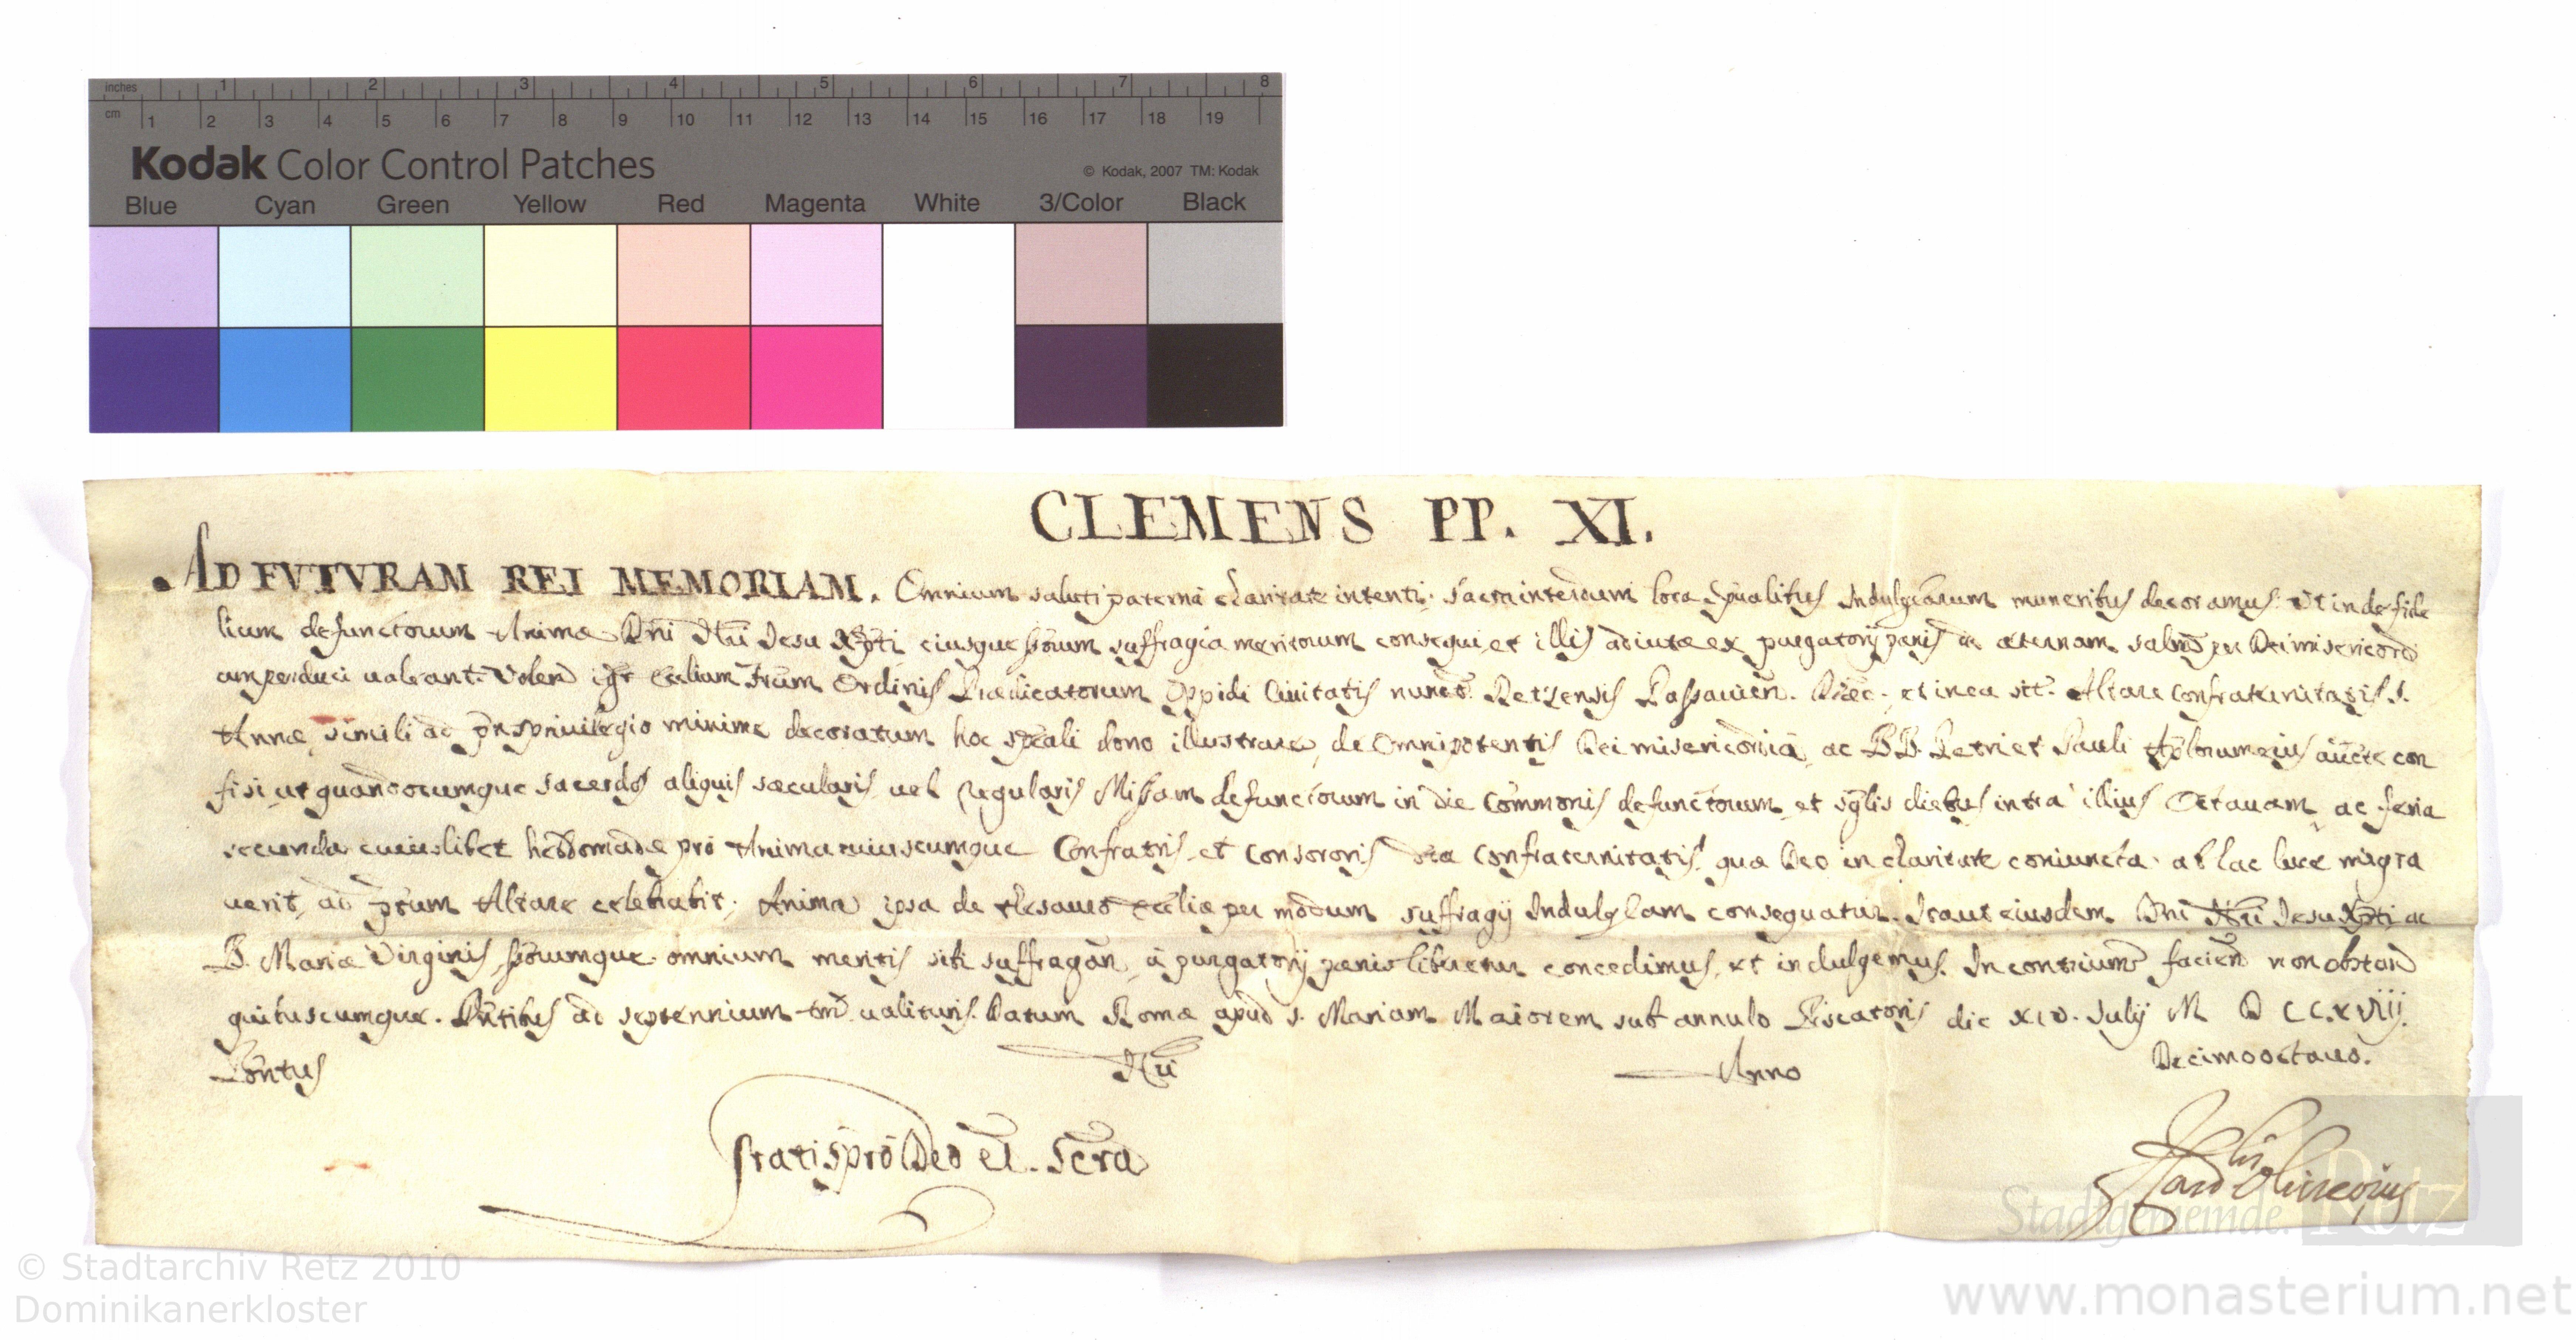 inches 1 2 3 4 5 6 7 8
cm 1 2 3 4 5 6 7 8 9 10 11 12 13 14 15 16 17 18 19
Kodak Color Control Patches © Kodak, 2007 TM: Kodak
Blue Cyan Green Yellow Red Magenta White 3/Color Black
CLEMENS PP. XI.
AD FVTVRAM REI MEMORIAM. Omnium saluti paterna charitate intenti sacra interdum loca spualibus Indulgtiarum muneribus decoramus: Ut inde fide
lium defunctorum Animæ Dni Nri Jesu Xpti eiusque ssorum suffragia meritorum consequi et illis adiutæ ex purgatorij pænis ad æternam salutem per Dei misericord
am perduci ualeant. Volen igr Eccliam Frum Ordinis Prædicatorum Oppidi Ciuitatis nuncup Retzensis Passauien. Diæc. et in ea sit. Altare Confraternitatis S.
Annæ, simili ad pns priuilegio minime decoratum hoc speali dono illustrare, de Omnipotentis Dei misericordia, ac BB. Petri et Pauli Aplorum eius aucte con
fisi, ut quandocumque sacerdos aliquis sæcularis, uel regularis Missam defunctorum in die Commonis defunctorum, et sglis diebus intra illius Octauam, ac feria
secunda cuiuslibet hebdomadæ pro Anima cuiuscumque Confratris, et Consororis dtæ Confraternitatis quæ Deo in charitate coniuncta ab hac luce migra
uerit, ad pttum Altare celebrabit, Anima ipsa de thesauro Eccliæ per modum suffragij Indulgtiam consequatur. Ita ut eiusdem Dni Nri Jesu Xpti ac
B. Mariæ Virginis, ssorumque omnium meritis sibi suffragan, à purgatorij pænis liberetur concedimus, et indulgemus. In contrium facien non obstan
quibuscumque. Pntibus ad septennium tm ualituris. Datum Romæ apud S. Mariam Maiorem sub annulo Piscatoris die XIV. Julij M D CC. XVIII.
Pontus Nri Anno Decimooctauo.
Gratis pro Deo et Scra
Card Oliuerius
Stadtgemeinde. Retz
© Stadtarchiv Retz 2010
Dominikanerkloster
www.monasterium.net